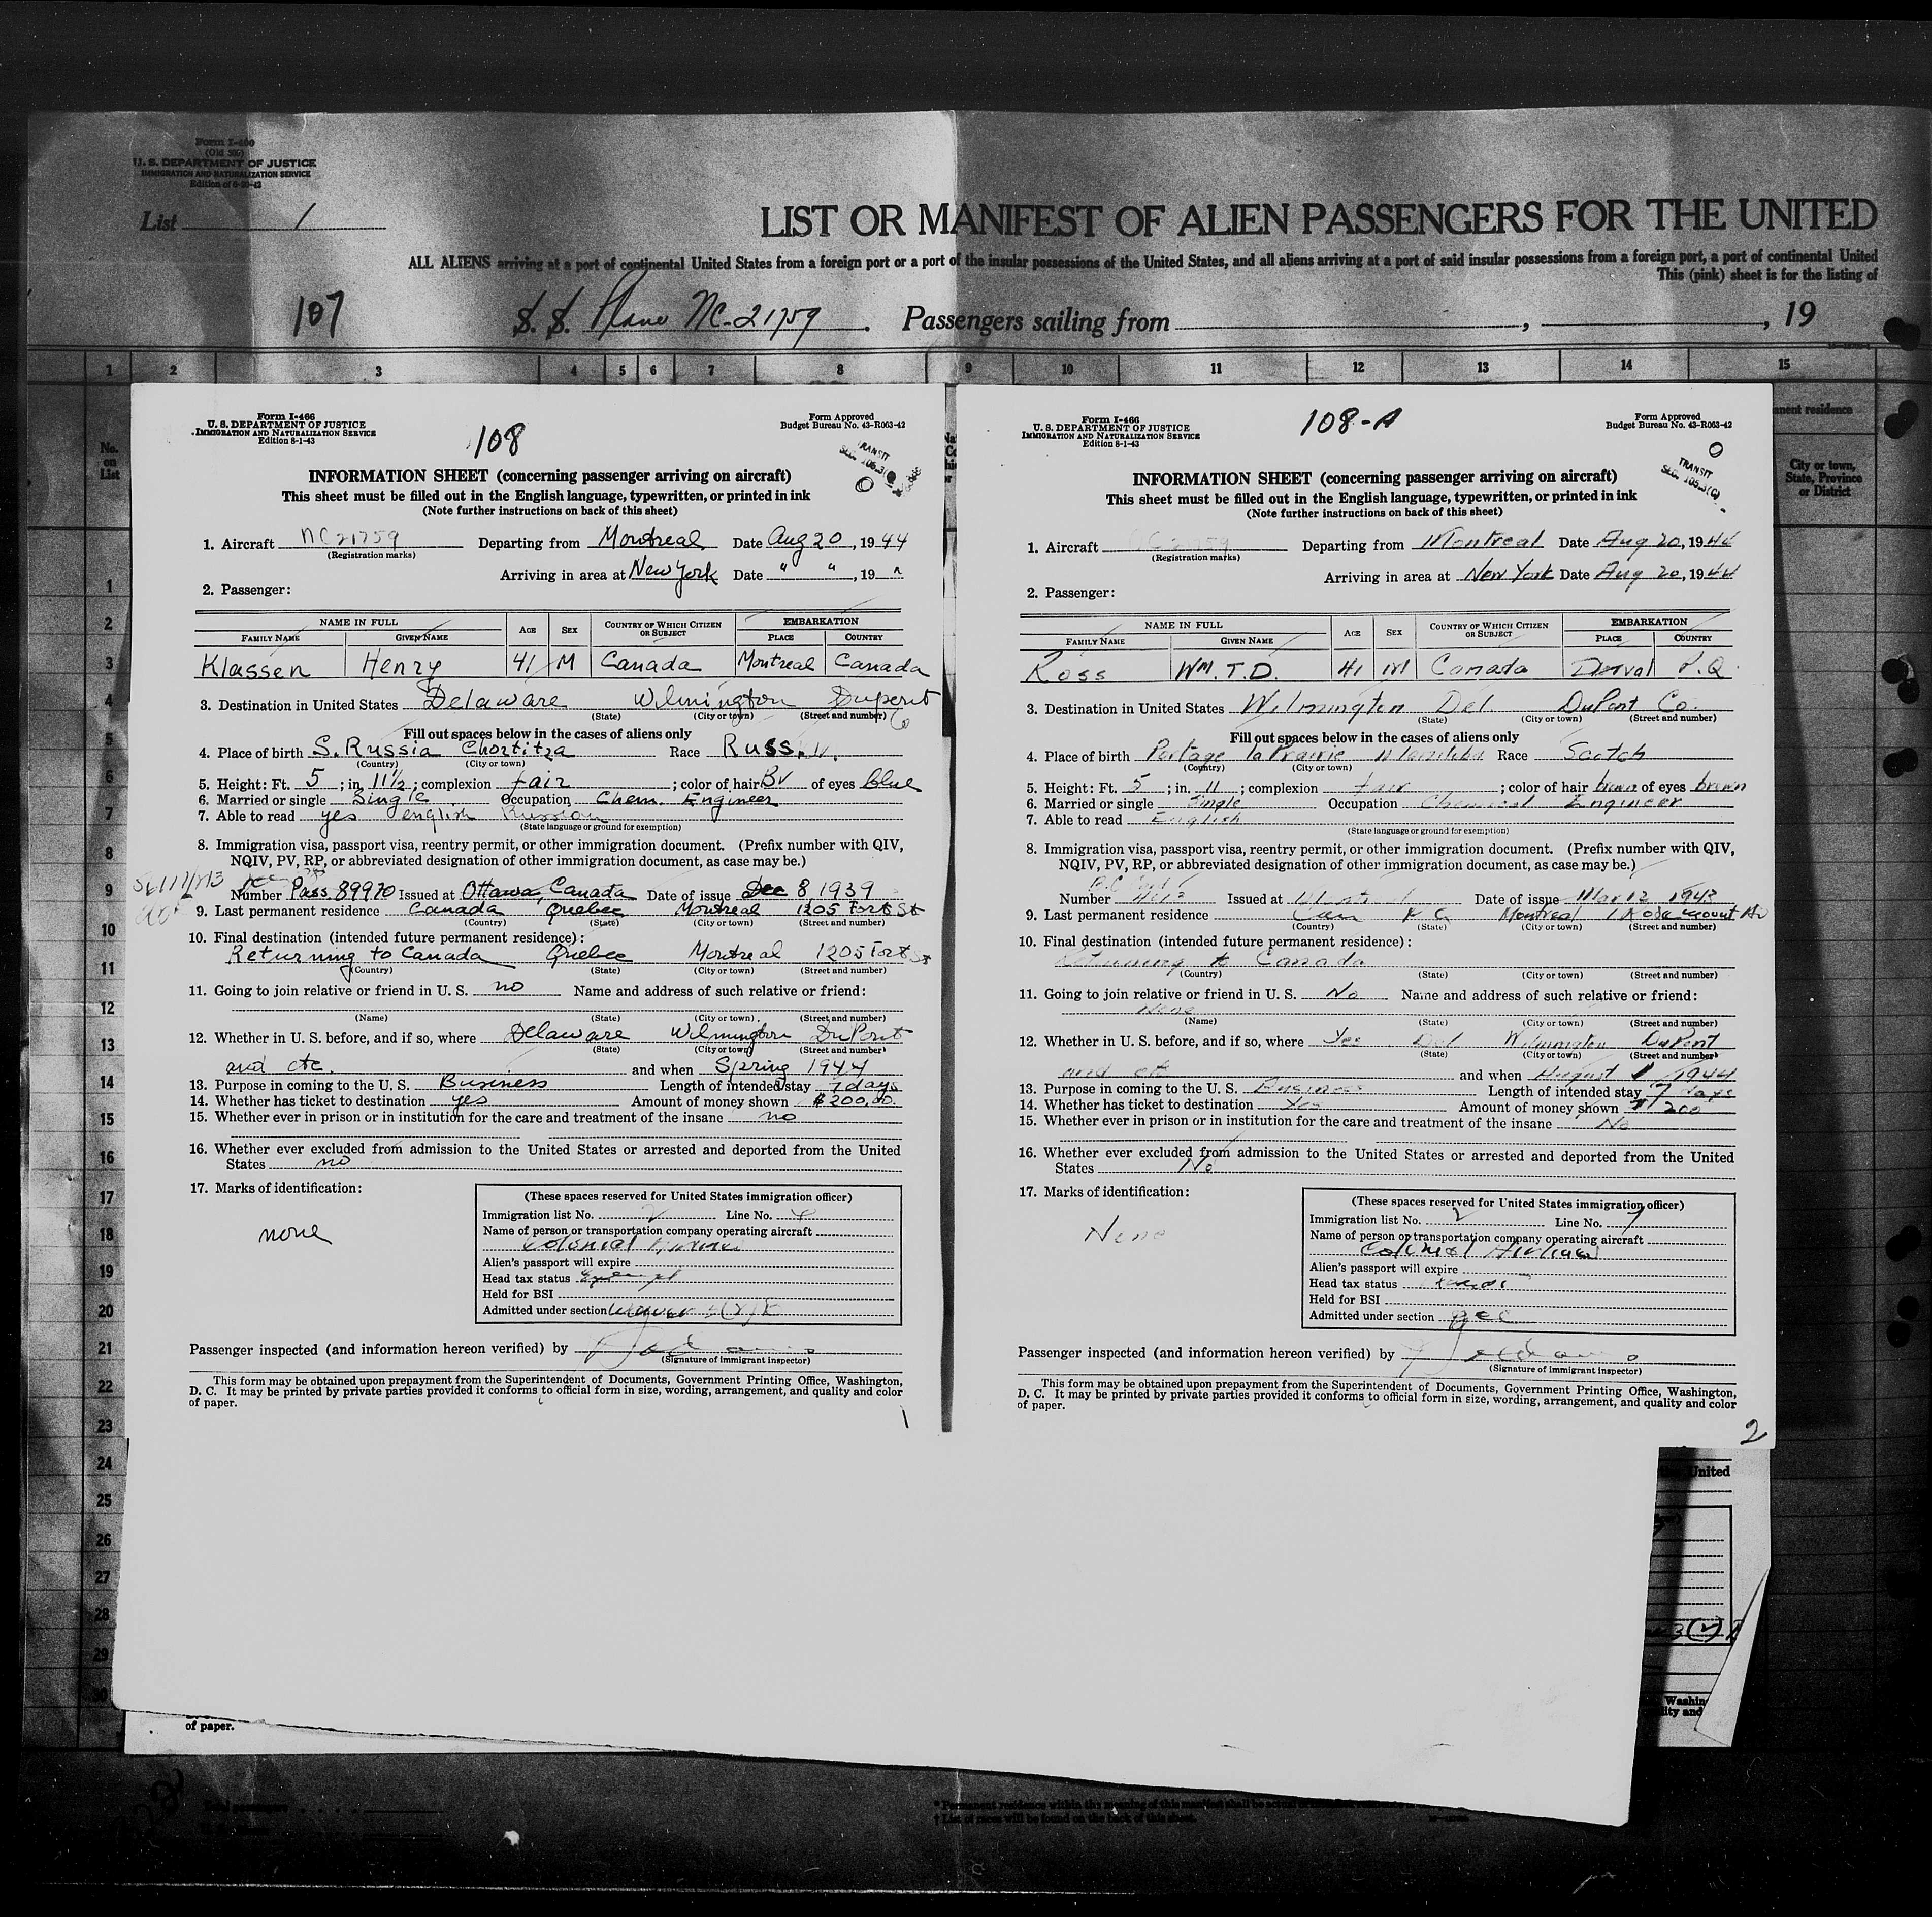 Form I-466
(Old 500)
U. S. DEPARTMENT OF JUSTICE
IMMIGRATION AND NATURALIZATION SERVICE
List 1
LIST OR MANIFEST OF ALIEN PASSENGERS FOR THE UNITED
ALL ALIENS arriving at a port of continental United States from a foreign port or a port of the insular possessions of the United States, and all aliens arriving at a port of said insular possessions from a foreign port, a port of continental United
This (pink) sheet is for the listing of
107 S. S. Plane NC-21759 . Passengers sailing from , , 19
1 2 3 4 5 6 7 8 9 10 11 12 13 14 15
No. on List
City or town, State, Province or District
Form I-466
U. S. DEPARTMENT OF JUSTICE
IMMIGRATION AND NATURALIZATION SERVICE
Edition 8-1-43
108
Form Approved
Budget Bureau No. 43-R063-42
TRANSIT
INFORMATION SHEET (concerning passenger arriving on aircraft)
This sheet must be filled out in the English language, typewritten, or printed in ink
(Note further instructions on back of this sheet)
1. Aircraft NC21759 Departing from Montreal Date Aug 20, 1944
(Registration marks)
Arriving in area at New York Date " ", 19 "
2. Passenger:
NAME IN FULL AGE SEX COUNTRY OF WHICH CITIZEN OR SUBJECT EMBARKATION
FAMILY NAME GIVEN NAME PLACE COUNTRY
Klassen Henry 41 M Canada Montreal Canada
3. Destination in United States Delaware Wilmington Dupont Co
(State) (City or town) (Street and number)
Fill out spaces below in the cases of aliens only
4. Place of birth S. Russia Chortitza Race Russ.
(Country) (City or town)
5. Height: Ft. 5 ; in. 11½ ; complexion fair ; color of hair Br of eyes blue
6. Married or single Single Occupation Chem. Engineer
7. Able to read yes english Russian
(State language or ground for exemption)
8. Immigration visa, passport visa, reentry permit, or other immigration document. (Prefix number with QIV,
NQIV, PV, RP, or abbreviated designation of other immigration document, as case may be.)
Number Pass. 89970 Issued at Ottawa, Canada Date of issue Dec 8 1939
9. Last permanent residence Canada Quebec Montreal 1205 Fort St
(Country) (State) (City or town) (Street and number)
10. Final destination (intended future permanent residence):
Returning to Canada Quebec Montreal 1205 Fort St
(Country) (State) (City or town) (Street and number)
11. Going to join relative or friend in U. S. no Name and address of such relative or friend:
(Name) (State) (City or town) (Street and number)
12. Whether in U. S. before, and if so, where Delaware Wilmington DuPont
(State) (City or town) (Street and number)
and etc. and when Spring 1944
13. Purpose in coming to the U. S. Business Length of intended stay 7 days
14. Whether has ticket to destination yes Amount of money shown $200.00
15. Whether ever in prison or in institution for the care and treatment of the insane no
16. Whether ever excluded from admission to the United States or arrested and deported from the United
States no
17. Marks of identification:
none
(These spaces reserved for United States immigration officer)
Immigration list No. 2 Line No. 4
Name of person or transportation company operating aircraft
Colonial Airlines
Alien's passport will expire
Head tax status Exempt
Held for BSI
Admitted under section
Passenger inspected (and information hereon verified) by
(Signature of immigrant inspector)
This form may be obtained upon prepayment from the Superintendent of Documents, Government Printing Office, Washington,
D. C. It may be printed by private parties provided it conforms to official form in size, wording, arrangement, and quality and color
of paper.
1
Form I-466
U. S. DEPARTMENT OF JUSTICE
IMMIGRATION AND NATURALIZATION SERVICE
Edition 8-1-43
108-A
Form Approved
Budget Bureau No. 43-R063-42
TRANSIT
INFORMATION SHEET (concerning passenger arriving on aircraft)
This sheet must be filled out in the English language, typewritten, or printed in ink
(Note further instructions on back of this sheet)
1. Aircraft NC 21759 Departing from Montreal Date Aug 20, 1944
(Registration marks)
Arriving in area at New York Date Aug 20, 1944
2. Passenger:
NAME IN FULL AGE SEX COUNTRY OF WHICH CITIZEN OR SUBJECT EMBARKATION
FAMILY NAME GIVEN NAME PLACE COUNTRY
Ross Wm. T.D. 41 M Canada Dorval P.Q.
3. Destination in United States Wilmington Del. DuPont Co.
(State) (City or town) (Street and number)
Fill out spaces below in the cases of aliens only
4. Place of birth Portage la Prairie Manitoba Race Scotch
(Country) (City or town)
5. Height: Ft. 5 ; in. 11 ; complexion fair ; color of hair brown of eyes brown
6. Married or single Single Occupation Chemical Engineer
7. Able to read English
(State language or ground for exemption)
8. Immigration visa, passport visa, reentry permit, or other immigration document. (Prefix number with QIV,
NQIV, PV, RP, or abbreviated designation of other immigration document, as case may be.)
Number Issued at Montreal Date of issue Mar 12 1943
9. Last permanent residence Can Montreal
(Country) (State) (City or town) (Street and number)
10. Final destination (intended future permanent residence):
Returning to Canada
(Country) (State) (City or town) (Street and number)
11. Going to join relative or friend in U. S. No Name and address of such relative or friend:
None
(Name) (State) (City or town) (Street and number)
12. Whether in U. S. before, and if so, where Yes Del Wilmington DuPont
(State) (City or town) (Street and number)
and etc and when August 1 1944
13. Purpose in coming to the U. S. Business Length of intended stay 7 days
14. Whether has ticket to destination Yes Amount of money shown $200
15. Whether ever in prison or in institution for the care and treatment of the insane No
16. Whether ever excluded from admission to the United States or arrested and deported from the United
States No
17. Marks of identification:
None
(These spaces reserved for United States immigration officer)
Immigration list No. 2 Line No. 7
Name of person or transportation company operating aircraft
Colonial Airlines
Alien's passport will expire
Head tax status
Held for BSI
Admitted under section
Passenger inspected (and information hereon verified) by
(Signature of immigrant inspector)
This form may be obtained upon prepayment from the Superintendent of Documents, Government Printing Office, Washington,
D. C. It may be printed by private parties provided it conforms to official form in size, wording, arrangement, and quality and color
of paper.
2
1
2
3
4
5
6
7
8
9
10
11
12
13
14
15
16
17
18
19
20
21
22
23
24
25
26
27
28
29
30
United
of paper.